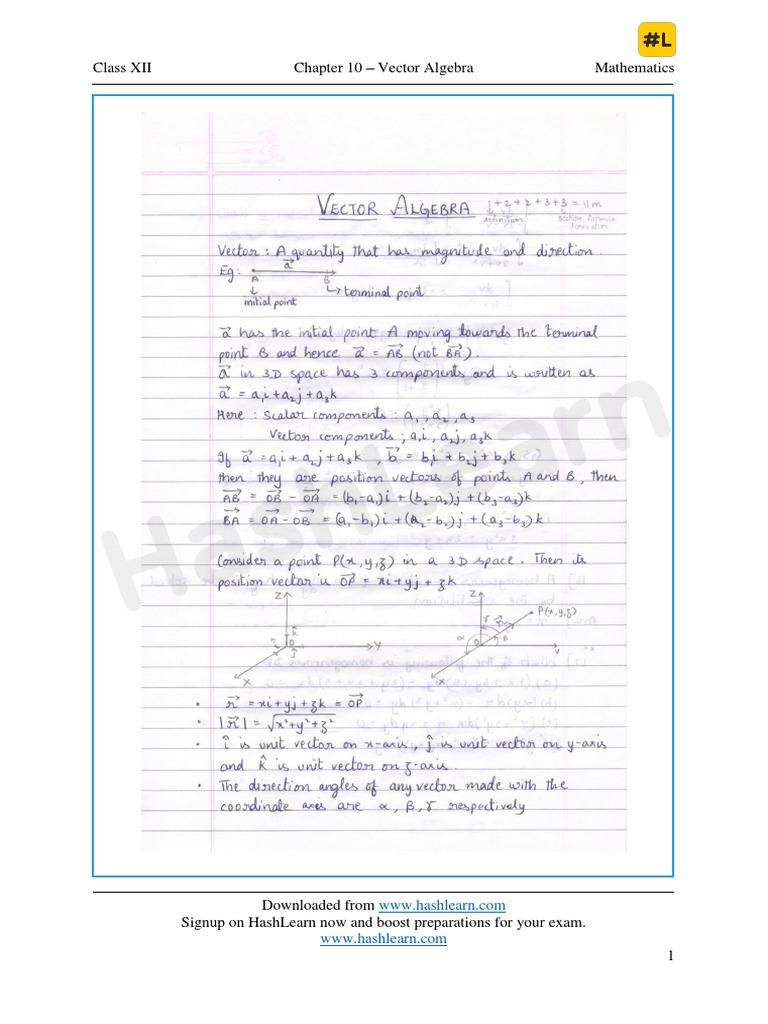 #L
Class XII Chapter 10 – Vector Algebra Mathematics
VECTOR ALGEBRA 1+2+2+3+3=11m
definition section formula
derivation
Vector: A quantity that has magnitude and direction.
Eg: a⃗
A B
↓ ↳ terminal point
initial point
a⃗ has the initial point A moving towards the terminal
point B and hence a⃗ = AB⃗ (not BA⃗).
a⃗ in 3D space has 3 components and is written as
a⃗ = a₁i + a₂j + a₃k
Here : Scalar components : a₁, a₂, a₃
Vector components ; a₁i, a₂j, a₃k
If a⃗ = a₁i + a₂j + a₃k , b⃗ = b₁i + b₂j + b₃k
then they are position vectors of points A and B, then
AB⃗ = OB⃗ - OA⃗ = (b₁-a₁)i + (b₂-a₂)j + (b₃-a₃)k
BA⃗ = OA⃗ - OB⃗ = (a₁-b₁)i + (a₂-b₂)j + (a₃-b₃)k
Consider a point P(x,y,z) in a 3D space. Then its
position vector is OP⃗ = xi + yj + zk
Z Z
P(x,y,z)
k̂ γ r⃗
î O α O β
ĵ Y Y
X X
• r⃗ = xi + yj + zk = OP⃗
• |r⃗| = √x²+y²+z²
• î is unit vector on x-axis, ĵ is unit vector on y-axis
and k̂ is unit vector on z-axis.
• The direction angles of any vector made with the
coordinate axes are α, β, γ respectively
HashLearn
Downloaded from www.hashlearn.com
Signup on HashLearn now and boost preparations for your exam.
www.hashlearn.com
1